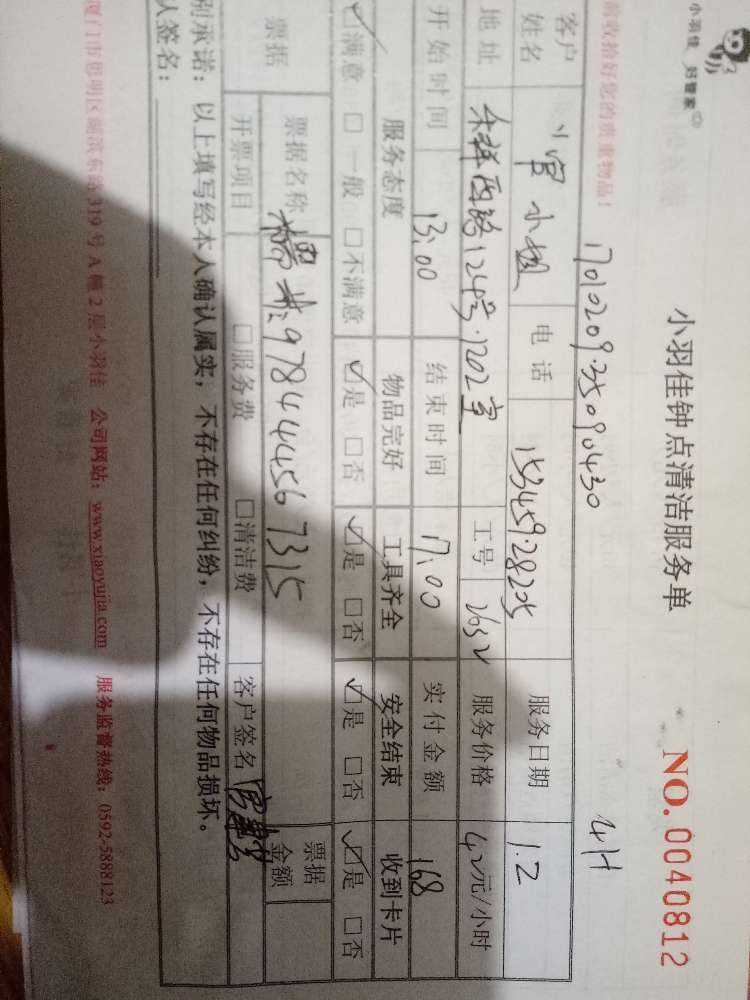 小羽佳 好管家
小羽佳钟点清洁服务单
NO.0040812
前收拾好您的贵重物品!
4H
客户姓名 小姐 电话 15345928205 服务日期 1.2
地址 西路124号.1202室 工号 2632 服务价格 42元/小时
开始时间 13:00 结束时间 17:00 实付金额 168
服务态度 物品完好 工具齐全 安全结束 收到卡片
☑满意 □一般 □不满意 ☑是 □否 ☑是 □否 ☑是 □否 ☑是 □否
票据 票据名称 978444567315 票据金额
开票项目 □服务费 □清洁费 客户签名
别承诺:以上填写经本人确认属实,不存在任何纠纷,不存在任何物品损坏。
人签名:
厦门市思明区湖滨东路319号A幢2层小羽佳 公司网站:www.xiaoyujia.com 服务监督热线:0592-5888123